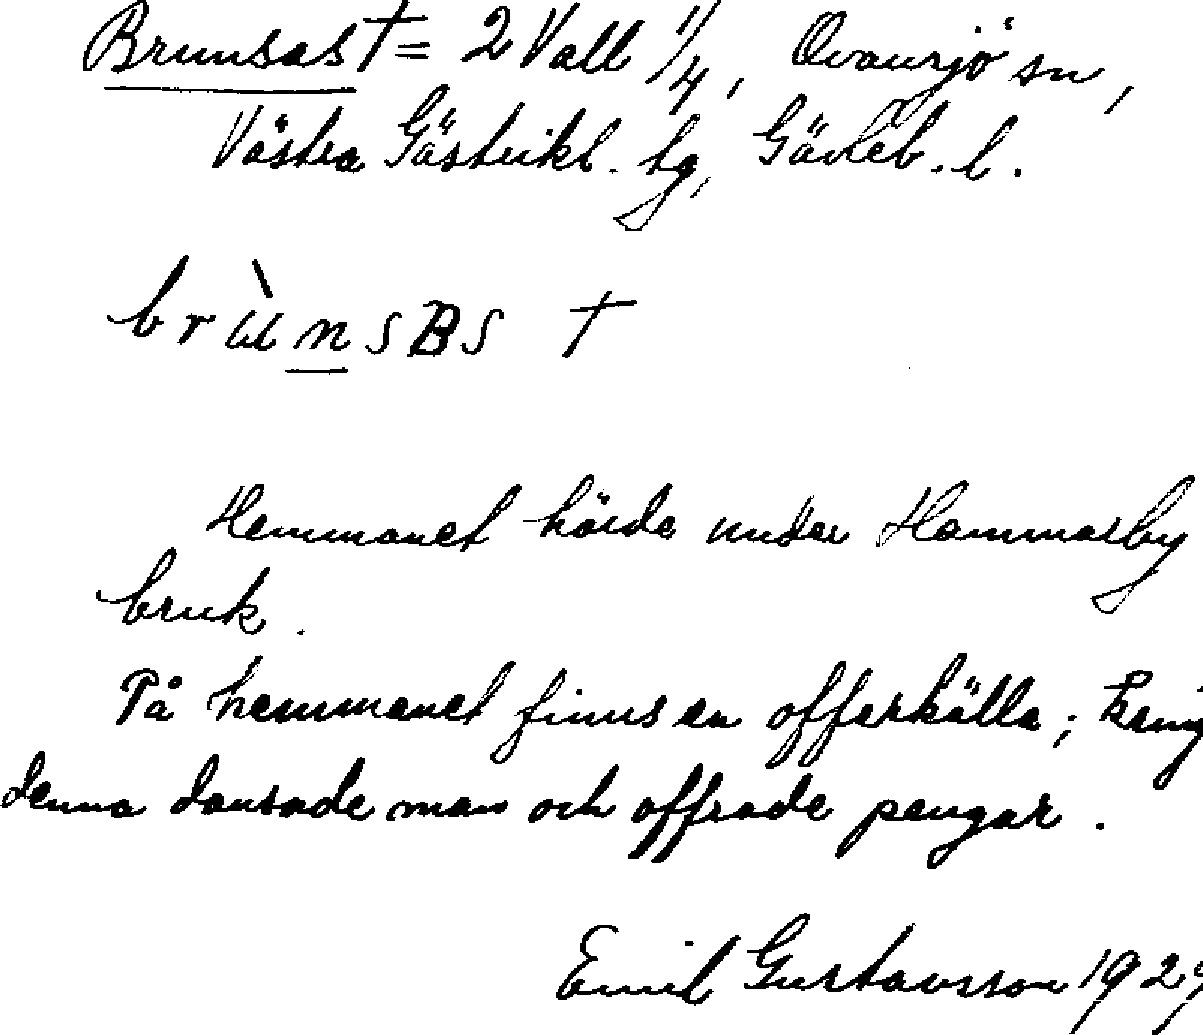 Brunsas † = 2 Vall 1/4, Ovansjö sn,
Västra Gästrikl. tg, Gävleb. l.
brùnsBs †
Hemmanet hörde under Hammarby
bruk.
På hemmanet finns en offerkälla; kring
denna dansade man och offrade pengar.
Emil Gustavsson